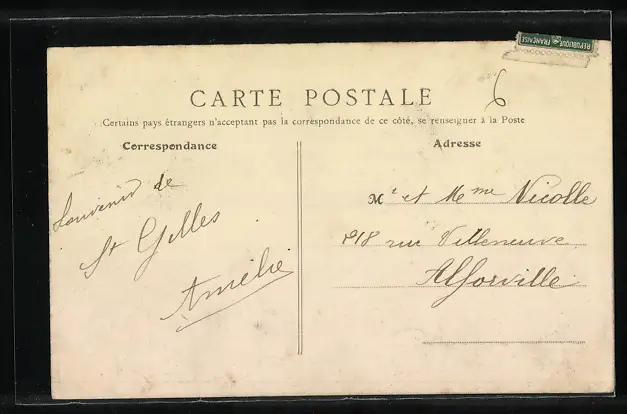 REPUBLIQUE FRANÇAISE
6
CARTE POSTALE
Certains pays étrangers n'acceptant pas la correspondance de ce côté, se renseigner à la Poste
Correspondance
Souvenir de
St Gilles
Amélie
Adresse
Mr et Mme Nicolle
218 rue Villeneuve
Alforville